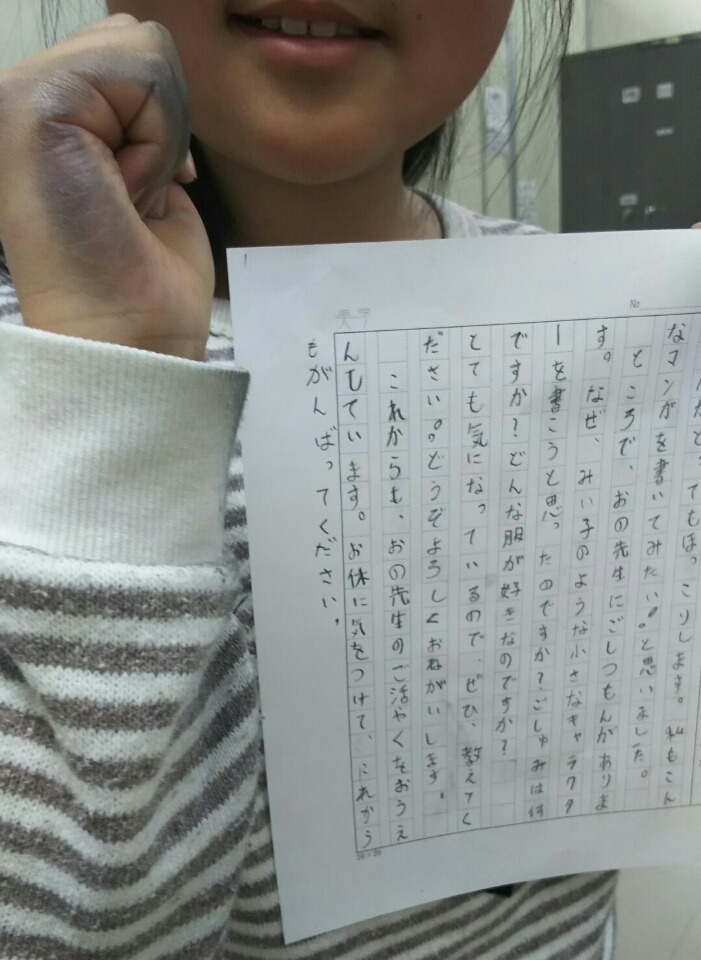 No.
とってもほっこりします。私もこん
なマンがを書いてみたい。と思いました。
ところで、おの先生にごしつもんがありま
す。なぜ、みい子のような小さなキャラクタ
ーを書こうと思ったのですか？ごしゅみは何
ですか？どんな服が好きなのですか？
とても気になっているので、ぜひ、教えてく
ださい。どうぞよろしくおねがいします。
これからも、おの先生のご活やくをおうえ
んしています。お休に気をつけて、これから
もがんばってください。
20×20